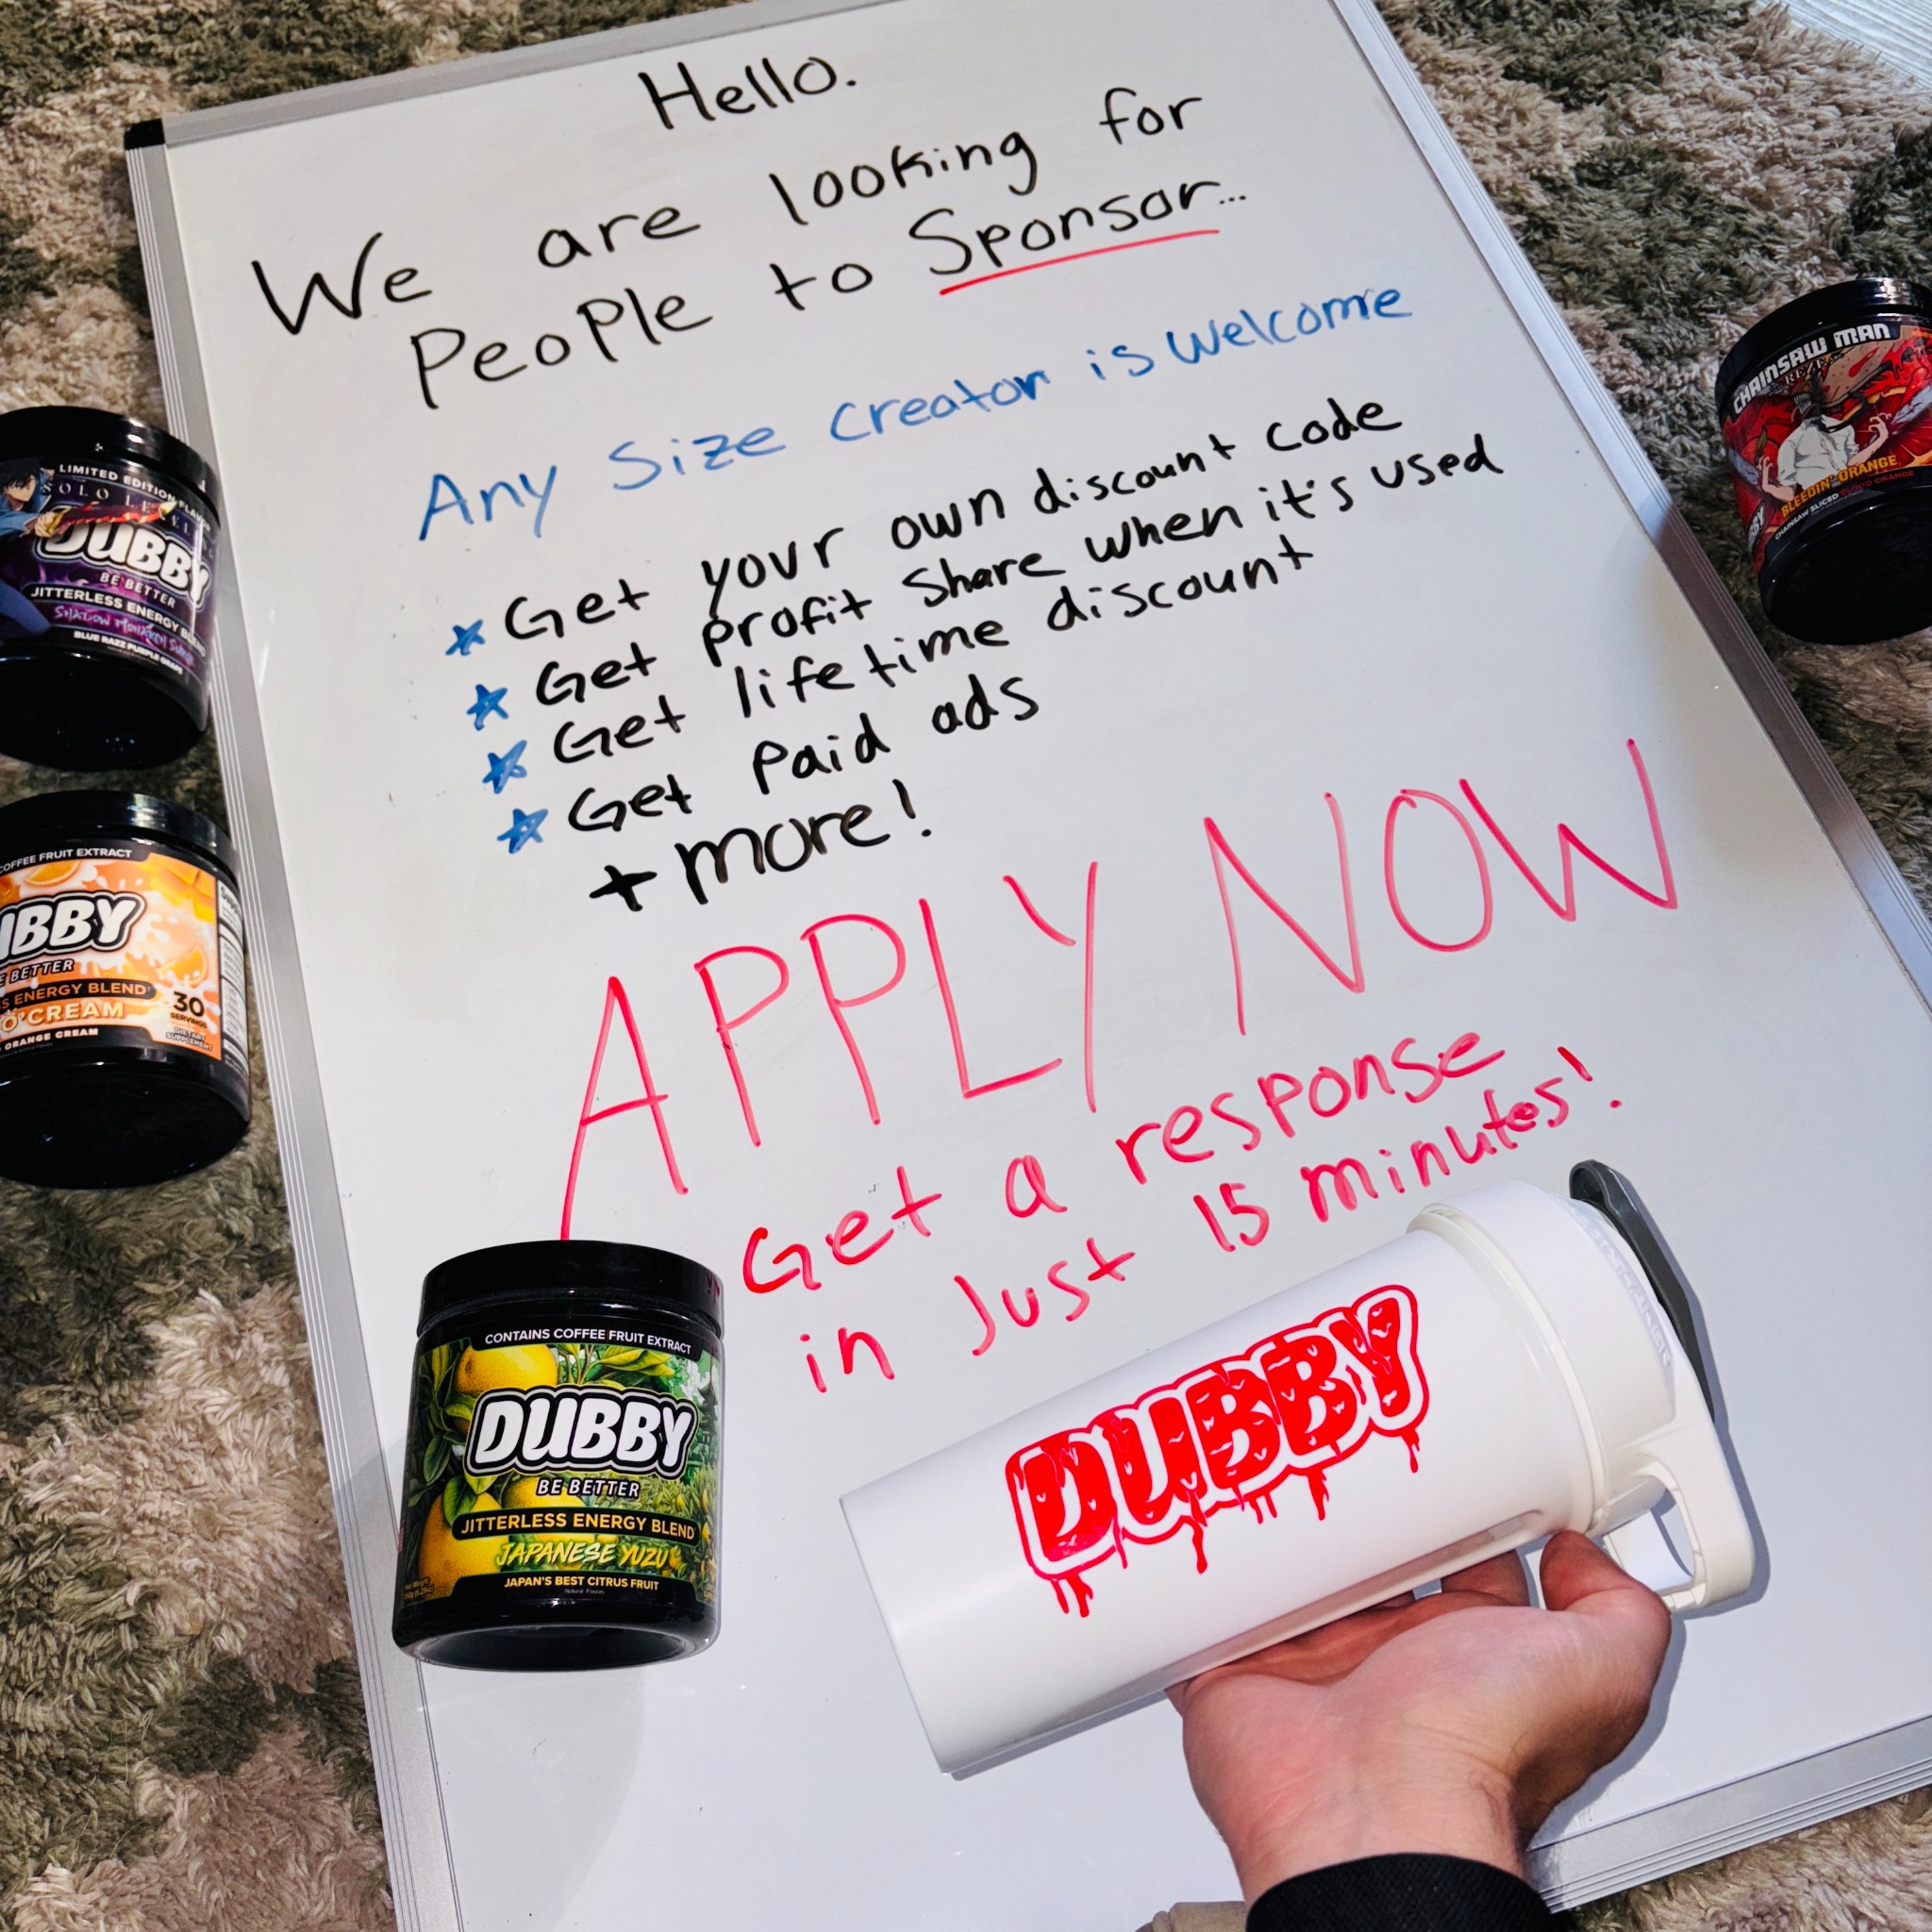 Hello.
We are looking for
People to Sponsor...
Any Size Creator is Welcome
Get your own discount code
Get profit Share when it's used
Get lifetime discount
Get Paid ads
+ more!
APPLY NOW
Get a response
in Just 15 minutes!
LIMITED EDITION FLAVOR
DUBBY
BE BETTER
JITTERLESS ENERGY
SHADOW MONARCH
BLUE RAZZ PURPLE GRAPE
COFFEE FRUIT EXTRACT
BETTER
ENERGY BLEND
O'CREAM
ORANGE CREAM
30
SERVINGS
DIETARY
SUPPLEMENT
CHAINSAW MAN
REZE
BLEEDIN' ORANGE
CHAINSAW SLICED BLOOD ORANGE
CONTAINS COFFEE FRUIT EXTRACT
DUBBY
BE BETTER
JITTERLESS ENERGY BLEND
JAPANESE YUZU
JAPAN'S BEST CITRUS FRUIT
Natural Flavors
DUBBY